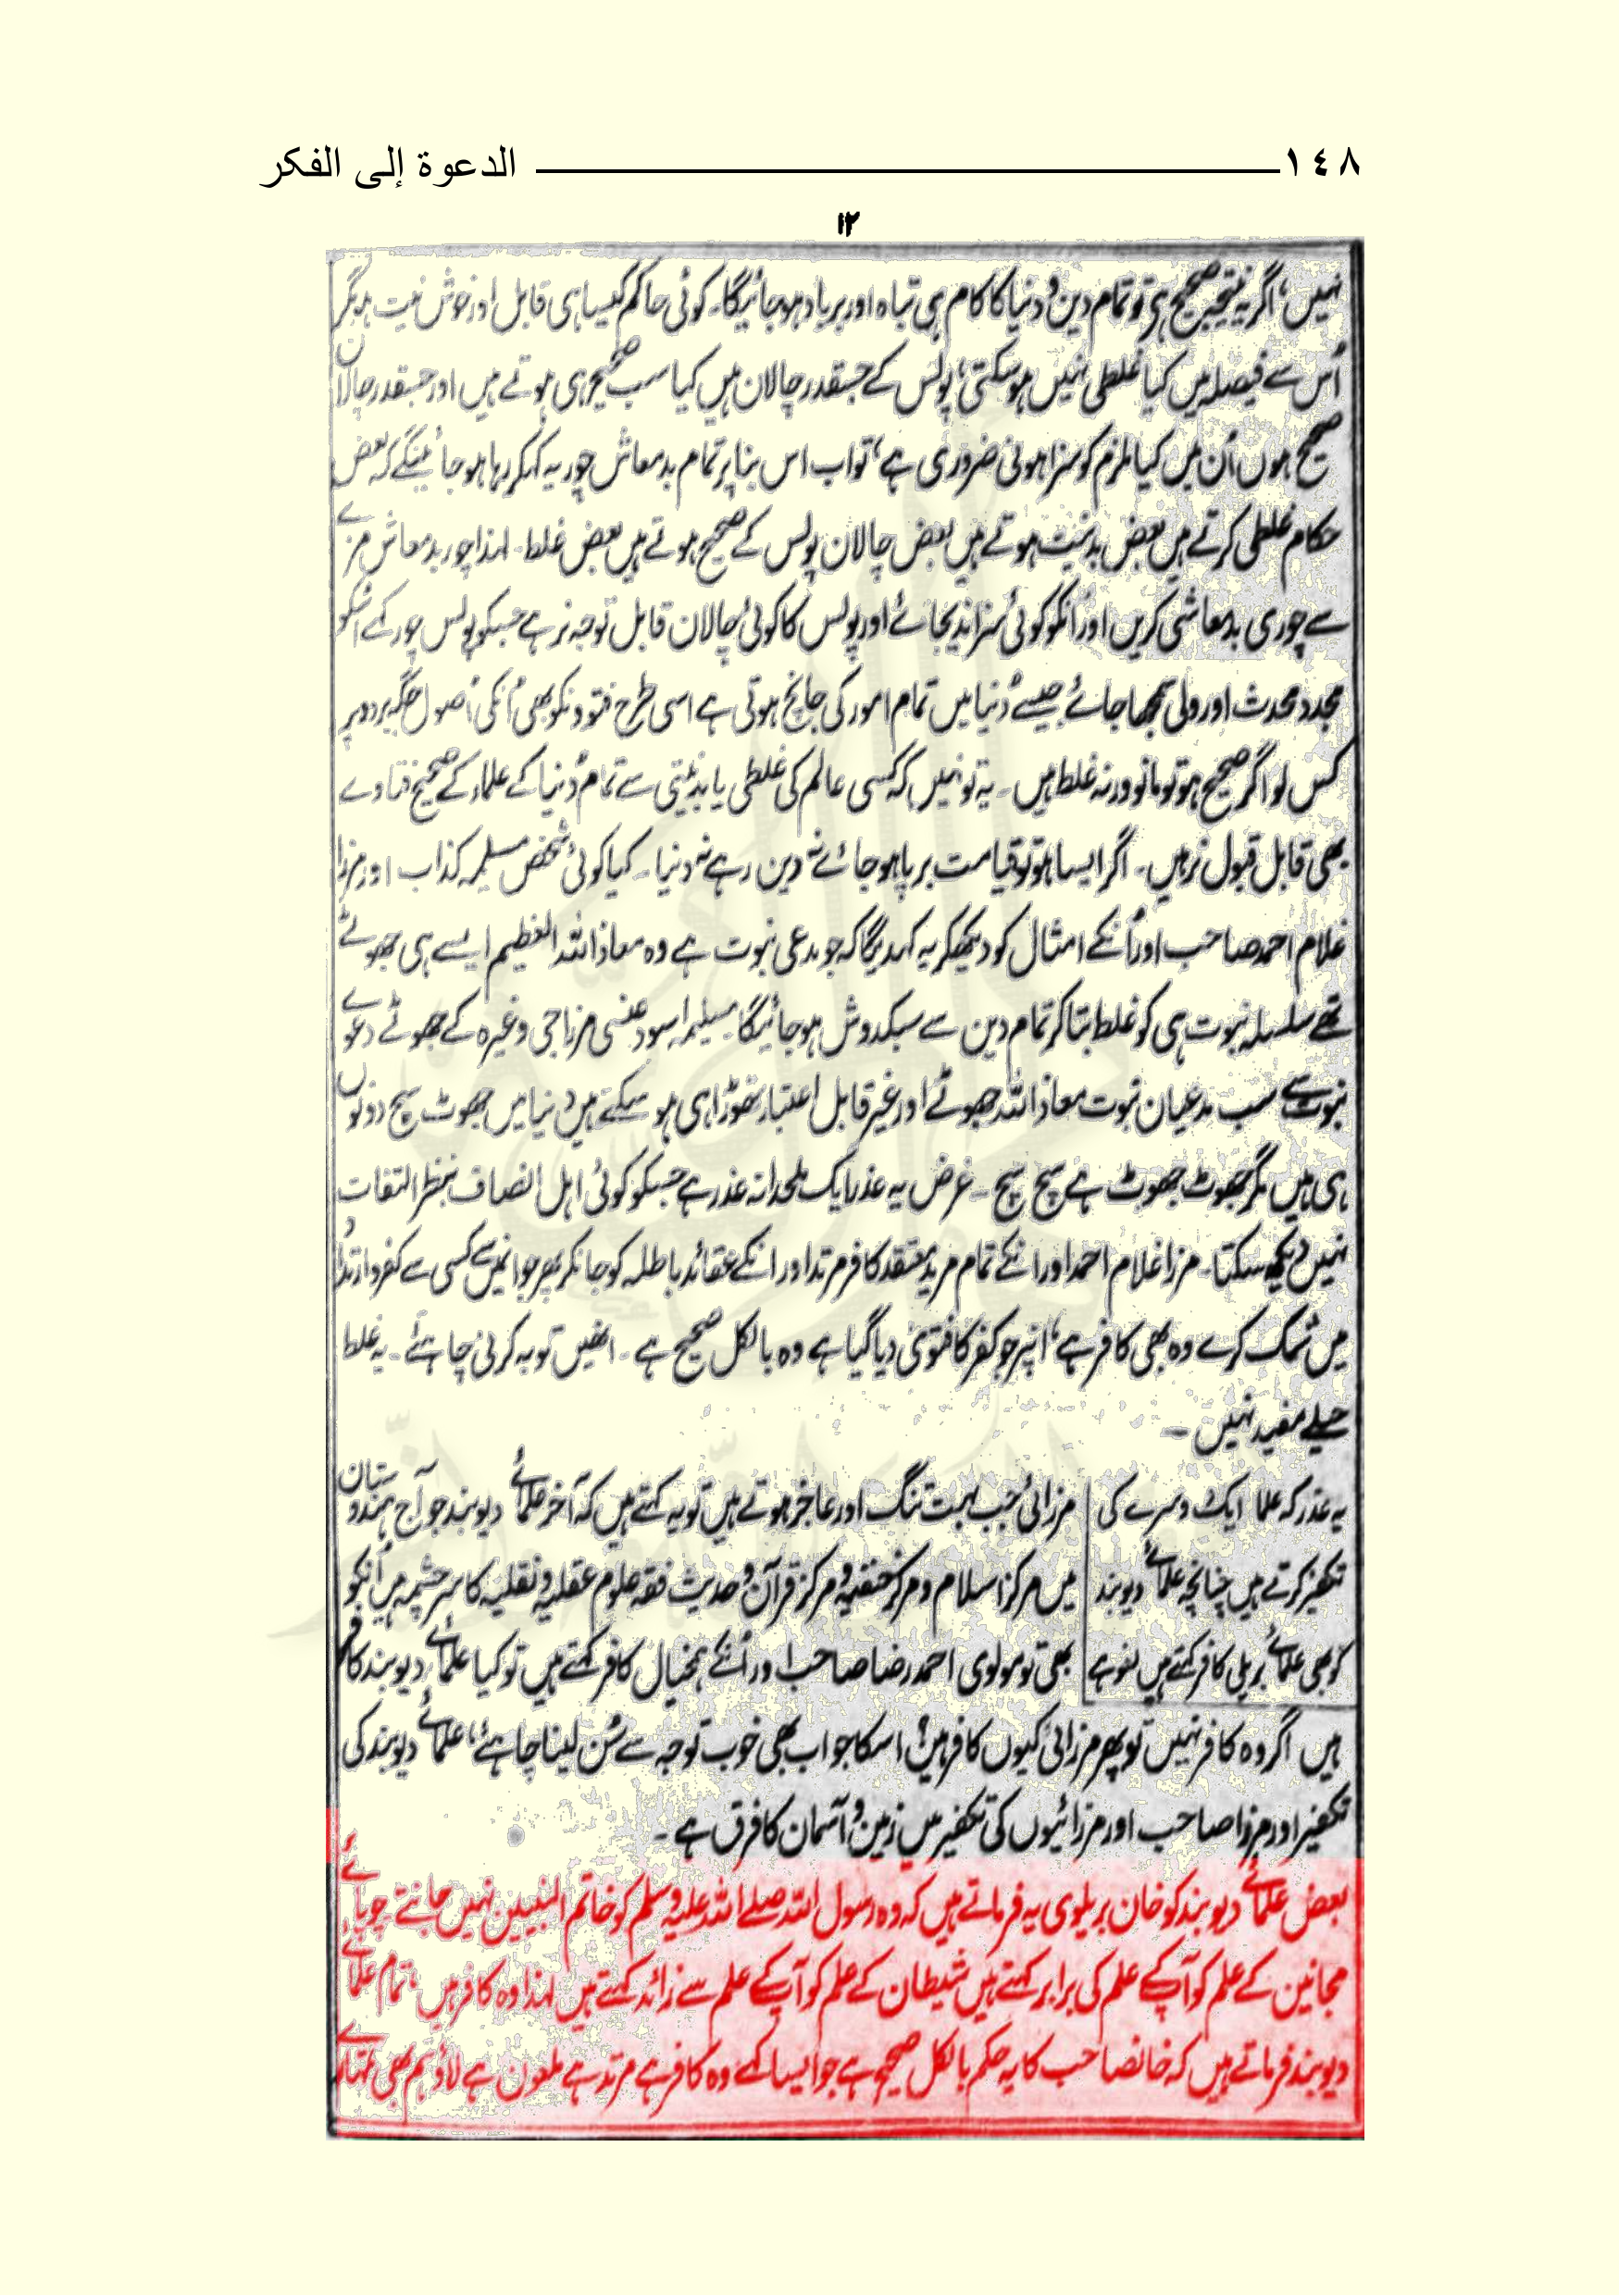 ١٤٨ الدعوة إلى الفكر
١٢
نہیں، اگر یہ نتیجہ صحیح ہی تو تمام دین و دنیا کا کام ہی تباہ اور برباد ہو جائیگا۔ کوئی حاکم کیسا ہی قابل اور خوش نیت ہو مگر
اُس سے فیصلہ میں کیا غلطی نہیں ہو سکتی، پولس کے جسقدر چالان ہیں کیا سب صحیح ہی ہوتے ہیں اور جسقدر چالان
صحیح ہوں اُن میں کیا ملزم کو سزا ہونی ضروری ہے، تو اب اس بنا پر تمام بدمعاش چور یہ کہکر رہا ہو جائینگے کہ بعض
حکام غلطی کرتے ہیں بعض بدنیت ہوتے ہیں بعض چالان پولس کے صحیح ہوتے ہیں بعض غلط۔ لہذا چور بدمعاش مزے
سے چوری بدمعاشی کریں اور اُنکو کوئی سزا نہ دیجائے اور پولس کا کوئی چالان قابل توجہ نہ رہے جسکو پولس چور کہے اُسکو
مجدد محدث اور ولی سمجھا جائے جیسے دُنیا میں تمام امور کی جانچ ہوتی ہے اسی طرح فتوونکو بھی اُنکی اُصول
کس لو اگر صحیح ہو تو مانو ورنہ غلط ہیں۔ یہ تو نہیں کہ کسی عالم کی غلطی یا بدنیتی سے تمام دُنیا کے علماء کے صحیح فتاوے
بھی قابل قبول نہ رہیں۔ اگر ایسا ہو تو قیامت برپا ہو جائے نہ دین رہے نہ دنیا۔ کیا کوئی شخص مسیلمہ کذاب اور مرزا
غلام احمد صاحب اور اُنکے امثال کو دیکھکر یہ کہدیگا کہ جو مدعی نبوت ہے وہ معاذ اللہ العظیم ایسے ہی جھوٹے
تھے سلسلہ نبوت ہی کو غلط بتا کر تمام دین سے سبکدوش ہو جائیگا۔ مسیلمہ اسود عنسی مرزا جی وغیرہ کے جھوٹے دعوے
نبوت سے سب مدعیان نبوت معاذ اللہ جھوٹے اور غیر قابل اعتبار تھوڑا ہی ہو سکتے ہیں دُنیا میں جھوٹ سچ دونوں
ہی ہیں مگر جھوٹ جھوٹ ہے سچ سچ۔ غرض یہ عذر ایک ملحدانہ عذر ہے جسکو کوئی اہل انصاف بنظر التفات
نہیں دیکھ سکتا۔ مرزا غلام احمد اور انکے تمام مرید معتقد کافر مرتد اور انکے عقائد باطلہ کو جانکر پھر جو انمیں سے کسی سے کفر و ارتداد
میں شک کرے وہ بھی کافر ہے، اُنپر جو کفر کا فتویٰ دیا گیا ہے وہ بالکل صحیح ہے۔ انھیں توبہ کرنی چاہئے۔ یہ غلط
حیلے مفید نہیں۔
یہ عذر کہ علما ایک دوسرے کی
تکفیر کرتے ہیں چنانچہ علمائے دیوبند
کو بھی علمائے بریلی کافر کہتے ہیں لغو ہے
مرزائی جب بہت تنگ اور عاجز ہوتے ہیں تو یہ کہتے ہیں کہ آخر علمائے دیوبند جو آج ہندوستان
میں مرکز اسلام و مرکز حنفیہ و مرکز قرآن و حدیث فقہ علوم عقلیہ و نقلیہ کا سرچشمہ ہیں اُنکو
بھی تو مولوی احمد رضا صاحب اور اُنکے ہمخیال کافر کہتے ہیں تو کیا علمائے دیوبند کافر
ہیں اگر وہ کافر نہیں تو پھر مرزائی کیوں کافر ہیں؟ اسکا جواب بھی خوب توجہ سے سُن لینا چاہئے، علمائے دیوبند کی
تکفیر اور مرزا صاحب اور مرزائیوں کی تکفیر میں زمین و آسمان کا فرق ہے۔
بعض علمائے دیوبند کو خان بریلوی یہ فرماتے ہیں کہ وہ رسول اللہ صلے اللہ علیہ وسلم کو خاتم النبیین نہیں جانتے چوپائے
مجانین کے علم کو آپکے علم کی برابر کہتے ہیں شیطان کے علم کو آپکے علم سے زائد کہتے ہیں لہذا وہ کافر ہیں، تمام علمائے
دیوبند فرماتے ہیں کہ خانصاحب کا یہ حکم بالکل صحیح ہے جو ایسا کہے وہ کافر ہے مرتد ہے ملعون ہے لاؤ ہم بھی تمہارے